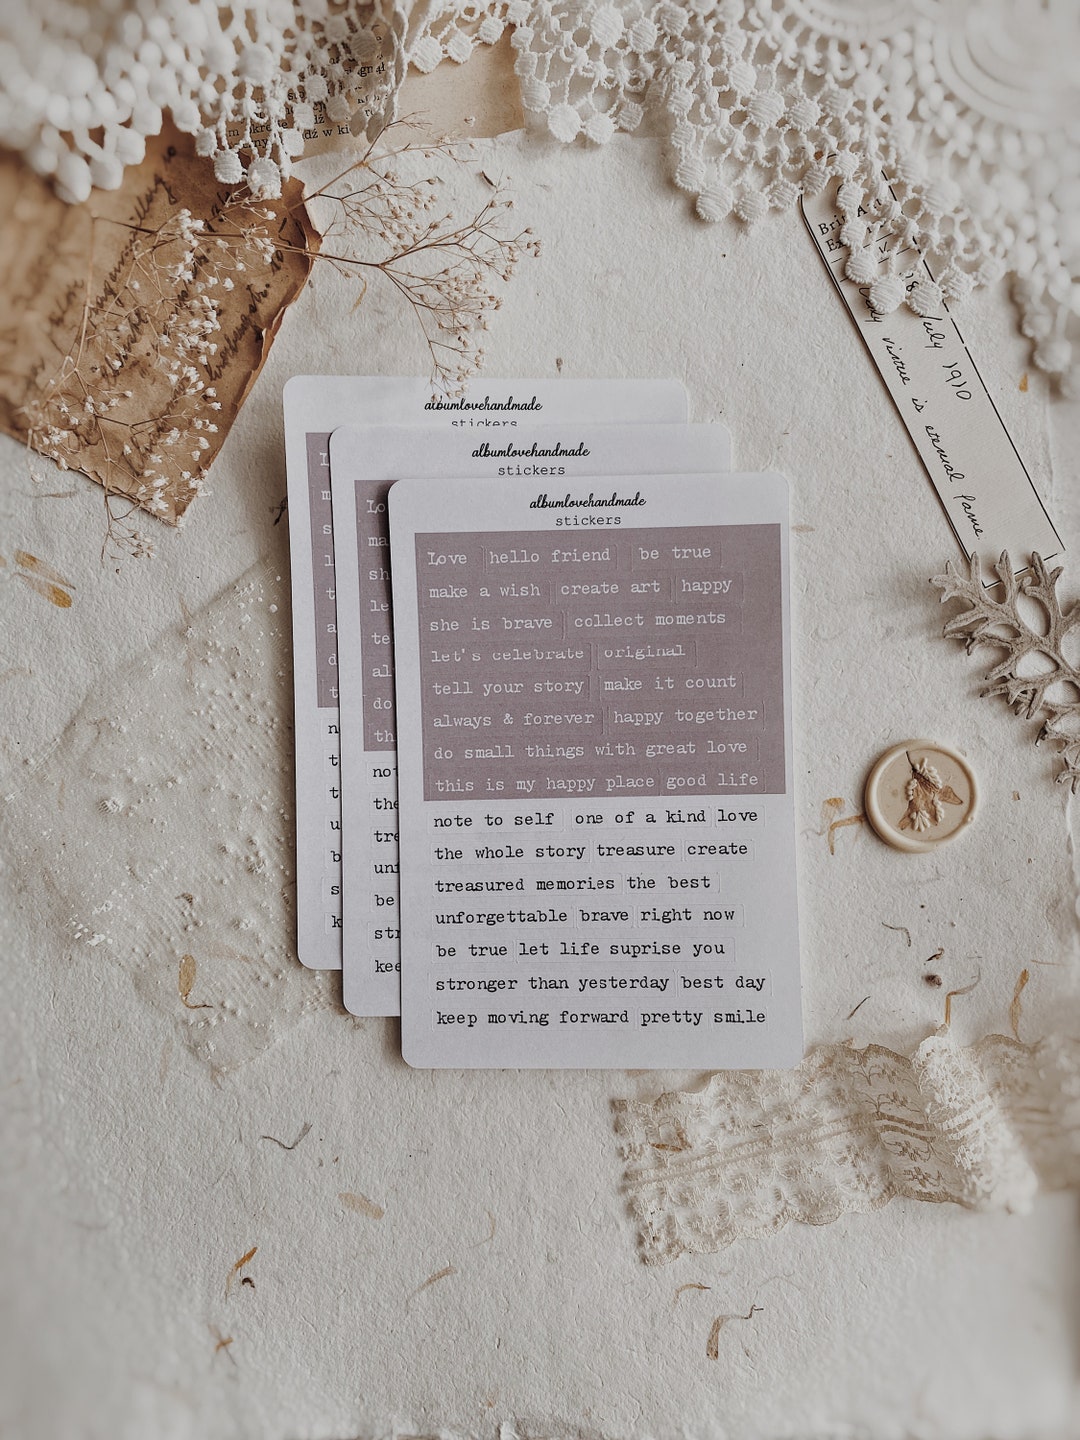 albumlovehandmade
stickers
albumlovehandmade
stickers
albumlovehandmade
stickers
Love hello friend be true
make a wish create art happy
she is brave collect moments
let's celebrate original
tell your story make it count
always & forever happy together
do small things with great love
this is my happy place good life
note to self one of a kind love
the whole story treasure create
treasured memories the best
unforgettable brave right now
be true let life suprise you
stronger than yesterday best day
keep moving forward pretty smile
July 1910
virtue is eternal fame